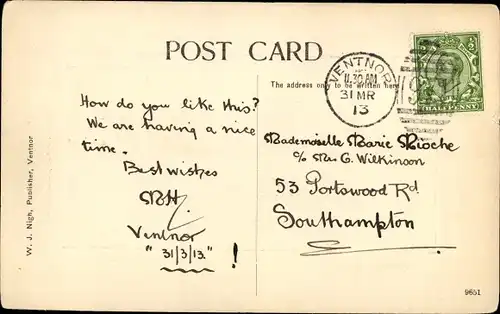 POST CARD
The address only to be written here
VENTNOR
11.30 AM
31 MR
13
HALFPENNY
How do you like this?
We are having a nice
time.
Best wishes
Ventnor
"31/3/13." !
Mademoiselle Marie Mioche
c/o Mrs G. Wilkinson
53 Portswood Rd.
Southampton
W. J. Nigh, Publisher, Ventnor
9651